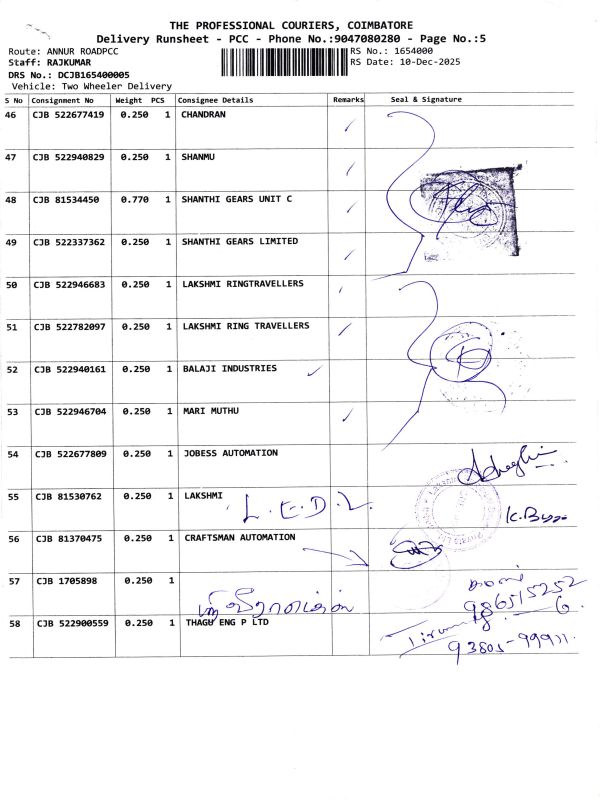 THE PROFESSIONAL COURIERS, COIMBATORE
Delivery Runsheet - PCC - Phone No.:9047080280 - Page No.:5
Route: ANNUR ROADPCC
RS No.: 1654000
Staff: RAJKUMAR
RS Date: 10-Dec-2025
DRS No.: DCJB165400005
Vehicle: Two Wheeler Delivery
S No Consignment No Weight PCS Consignee Details Remarks Seal & Signature
46 CJB 522677419 0.250 1 CHANDRAN ✓
47 CJB 522940829 0.250 1 SHANMU ✓
48 CJB 81534450 0.770 1 SHANTHI GEARS UNIT C ✓
49 CJB 522337362 0.250 1 SHANTHI GEARS LIMITED ✓
50 CJB 522946683 0.250 1 LAKSHMI RINGTRAVELLERS
51 CJB 522782097 0.250 1 LAKSHMI RING TRAVELLERS ✓
52 CJB 522940161 0.250 1 BALAJI INDUSTRIES ✓
53 CJB 522946704 0.250 1 MARI MUTHU ✓
54 CJB 522677809 0.250 1 JOBESS AUTOMATION
55 CJB 81530762 0.250 1 LAKSHMI L.E.D.L.
56 CJB 81370475 0.250 1 CRAFTSMAN AUTOMATION
57 CJB 1705898 0.250 1
986515252
6
58 CJB 522900559 0.250 1 THAGU ENG P LTD
93805-99911